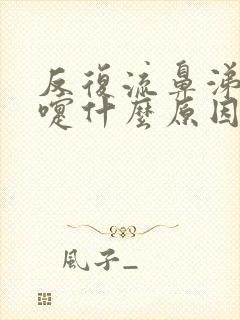 反復流鼻涕
嚏什麼原因
風子_